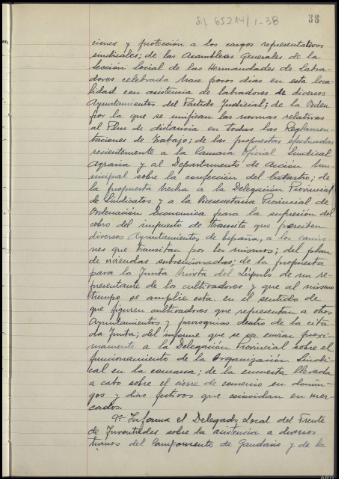 38
ciones y protección a los cargos representativos
sindicales; de las Asambleas Generales de la
Sección Social de las Hermandades de Labra-
dores celebrada hace pocos días en esta loca-
lidad con asistencia de labradores de diversos
Ayuntamientos del Partido Judicial; de la Orden
por la que se unifican las normas relativas
al Plus de distancia en todas las Reglamen-
taciones de Trabajo; de las propuestas efectuadas
recientemente a la Cámara Oficial Sindical
Agraria y al Departamento de Acción Mu-
nicipal sobre la confección del Catastro; de
la propuesta hecha a la Delegación Provincial
de Sindicatos y a la Vicesecretaría Provincial de
Ordenación Económica para la supresión del
cobro del impuesto de tránsito que perciben
diversos Ayuntamientos de España, a los camio-
nes que transitan por los mismos; del plan
de viviendas subvencionadas; de la propuesta
para la Junta Mixta del Lúpulo de un re-
presentante de los cultivadores y que al mismo
tiempo se amplíe esta en el sentido de
que figuren cultivadores que representen a otros
Ayuntamientos y parroquias dentro de la cita-
da Junta; del informe que se va enviar próxi-
mamente a la Delegación Provincial sobre el
funcionamiento de la Organización Sindi-
cal en la comarca; de la encuesta llevada
a cabo sobre el cierre de comercio en domin-
gos y días festivos que coincidan en mer-
cados.
9º Informa el Delegado Local del Frente
de Juventudes sobre la asistencia a diversos
turnos del Campamento de Gandarío y de la